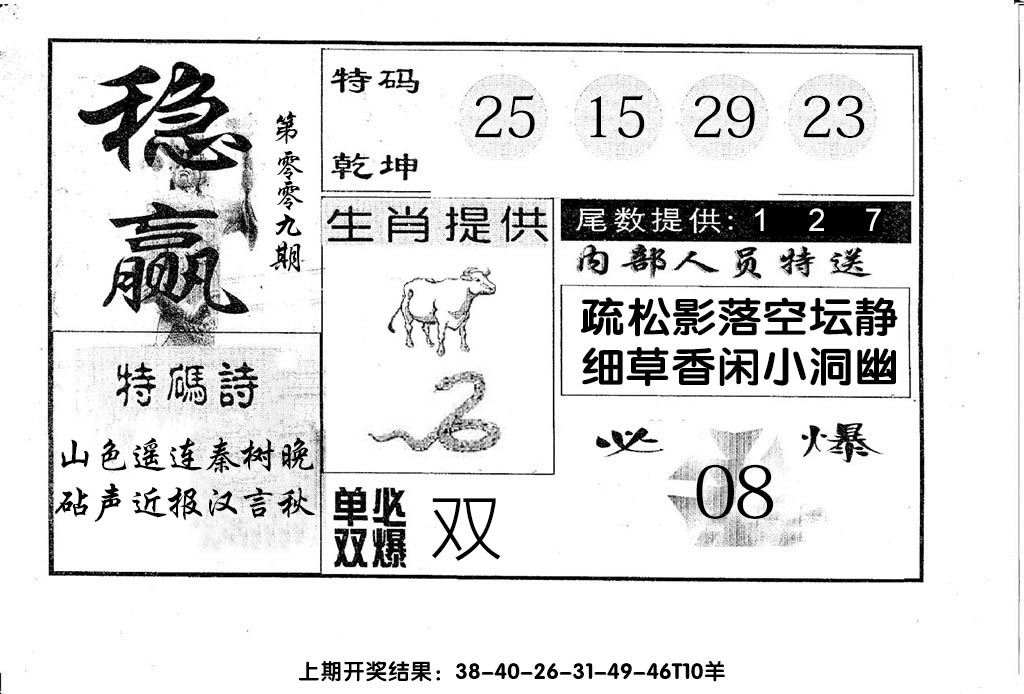 稳赢
第零零九期
特码
乾坤
25 15 29 23
生肖提供
尾数提供: 1 2 7
内部人员特送
疏松影落空坛静
细草香闲小洞幽
特碼詩
山色遥连秦树晚
砧声近报汉言秋
必爆
08
单双
必爆
双
上期开奖结果：38-40-26-31-49-46T10羊